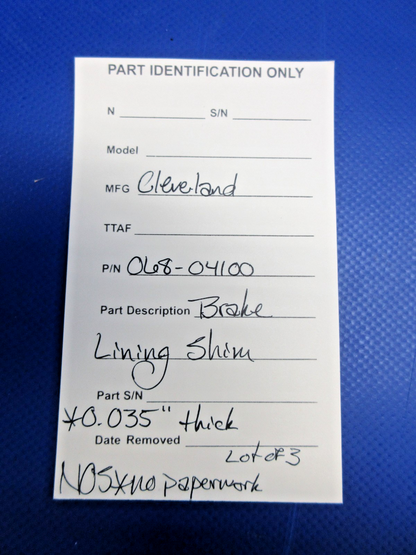 PART IDENTIFICATION ONLY
N S/N
Model
MFG Cleveland
TTAF
P/N 068-04100
Part Description Brake
Lining Shim
Part S/N
*0.035" thick
Date Removed
Lot of 3
NOS*no paperwork